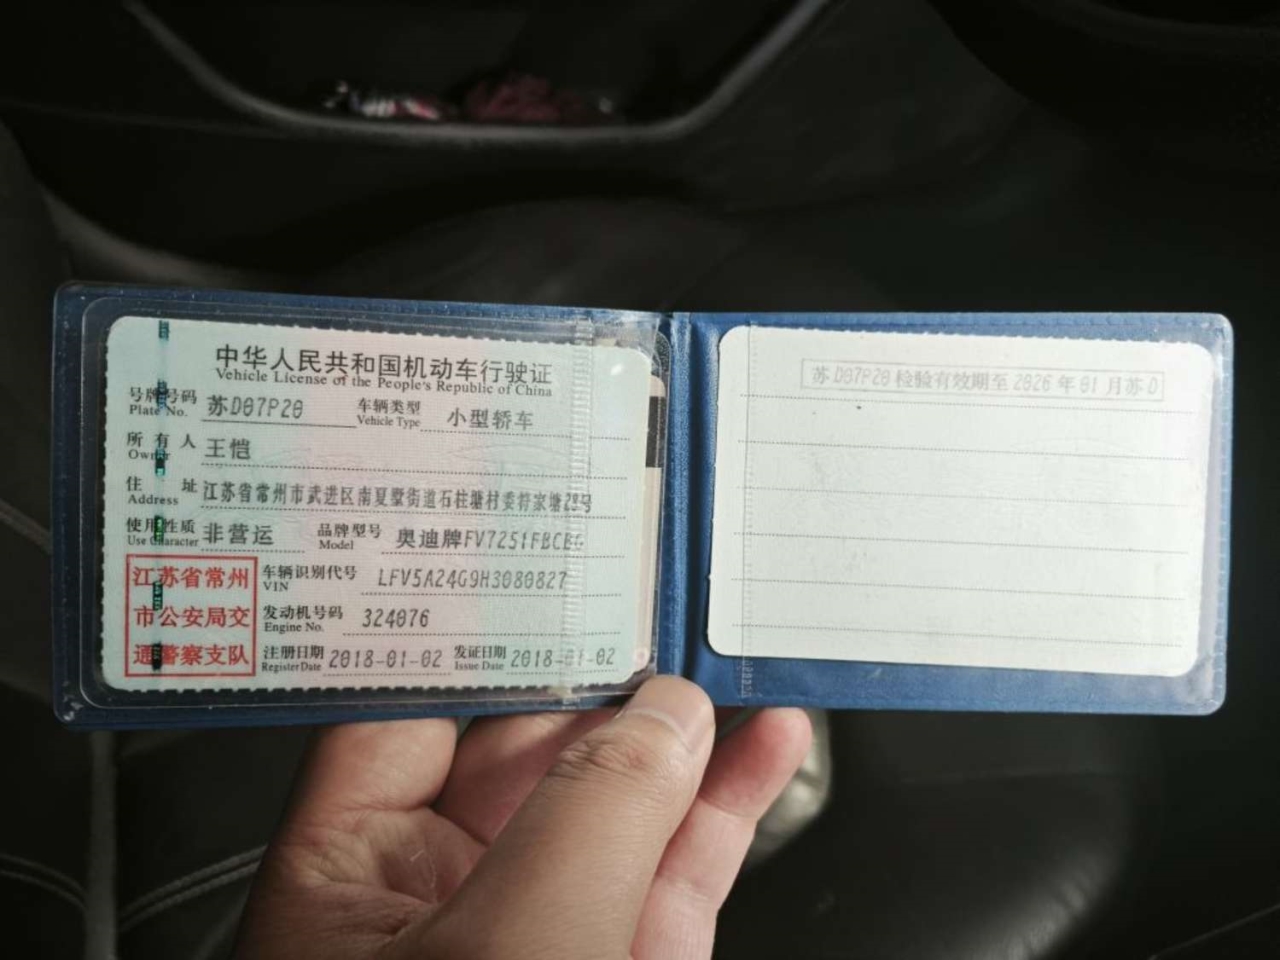 中华人民共和国机动车行驶证
Vehicle License of the People's Republic of China
号牌号码 苏D07P20 车辆类型 小型轿车
Plate No. Vehicle Type
所有人 王恺
Owner
住址 江苏省常州市武进区南夏墅街道石柱塘村委符家塘29号
Address
使用性质 非营运 品牌型号 奥迪牌FV7251FBCBG
Use Character Model
江苏省常州
市公安局交
通警察支队
车辆识别代号 LFV5A24G9H3080827
VIN
发动机号码 324076
Engine No.
注册日期 2018-01-02 发证日期 2018-01-02
Register Date Issue Date
苏D07P20检验有效期至2026年01月苏D